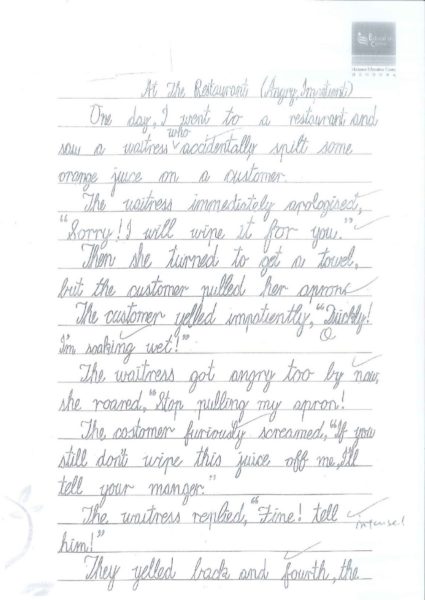 Education
Centre
At The Restaurant (Angry, Impatient)
One day, I went to a restaurant and
who
saw a waitress accidentally spilt some
orange juice on a customer.
The waitress immediately apologised,
"Sorry! I will wipe it for you."
Then she turned to get a towel,
but the customer pulled her apron.
The customer yelled impatiently, "Quickly!
Q
I'm soaking wet!"
The waitress got angry too by now,
she roared, "Stop pulling my apron!
The costomer furiously screamed, "If you
still don't wipe this juice off me, I'll
tell your manger."
The waitress replied, "Fine! tell
intense!
him!"
They yelled back and fourth, the